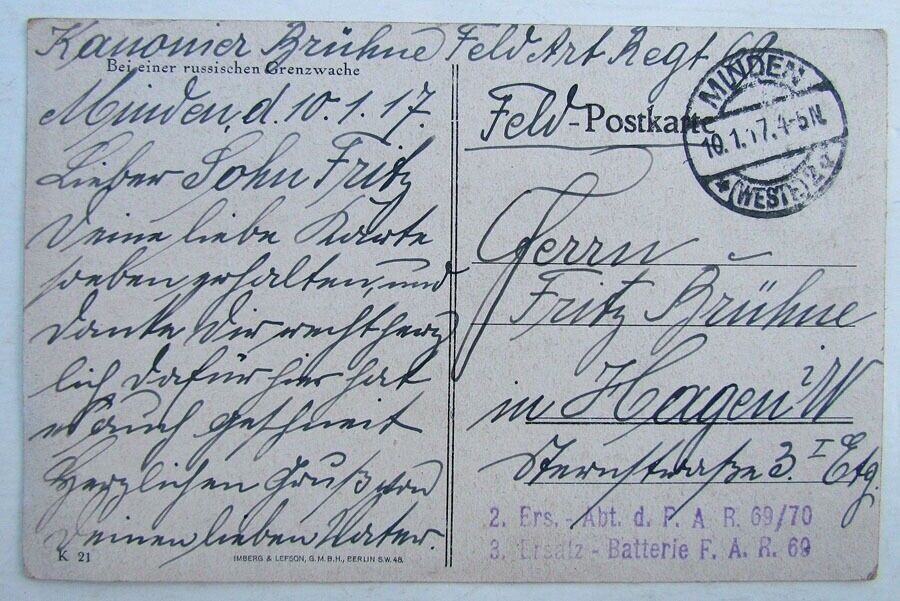 Kanonier Brühne Feld Art Regt 69
Bei einer russischen Grenzwache
Minden, d. 10.1.17.
Lieber Sohn Fritz
Deine liebe Karte
soeben erhalten, und
danke Dir recht herz
lich dafür hier hat
es auch geschneit
Herzlichen Gruß von
Deinen lieben Vater.
K 21
IMBERG & LEFSON, G.M.B.H., BERLIN S.W. 48.
Feld-Postkarte
MINDEN
10.1.17.4-5N.
* (WESTF.)
Herrn
Fritz Brühne
in Hagen i/W
Sternstraße 3. I Etg.
2. Ers. - Abt. d. F. A. R. 69/70
3. Ersatz - Batterie F. A. R. 69